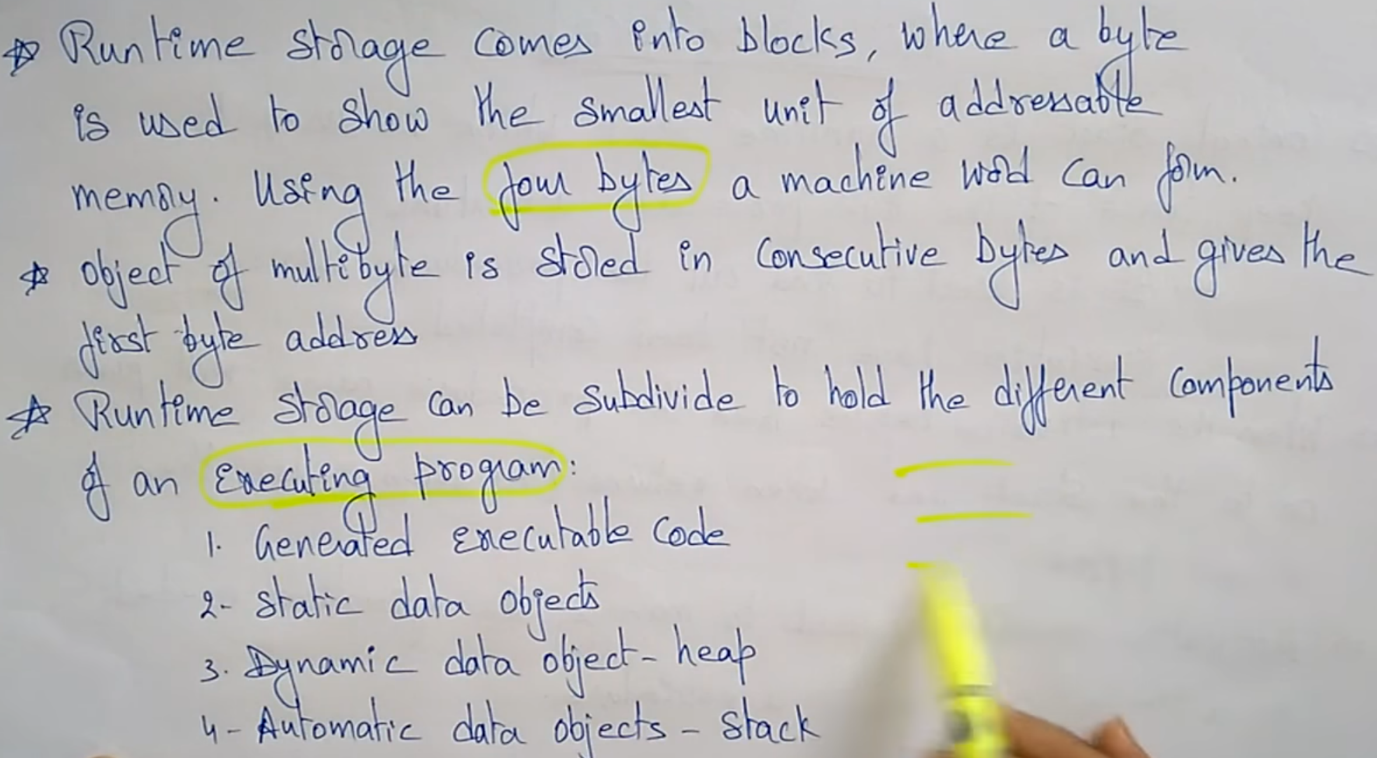 Runtime storage comes into blocks, where a byte
is used to show the smallest unit of addressable
memory. Using the four bytes a machine word can form.
object of multibyte is stored in consecutive bytes and gives the
first byte address
Runtime storage can be subdivide to hold the different components
of an executing program:
1. Generated executable code
2- static data objects
3. Dynamic data object- heap
4- Automatic data objects - stack